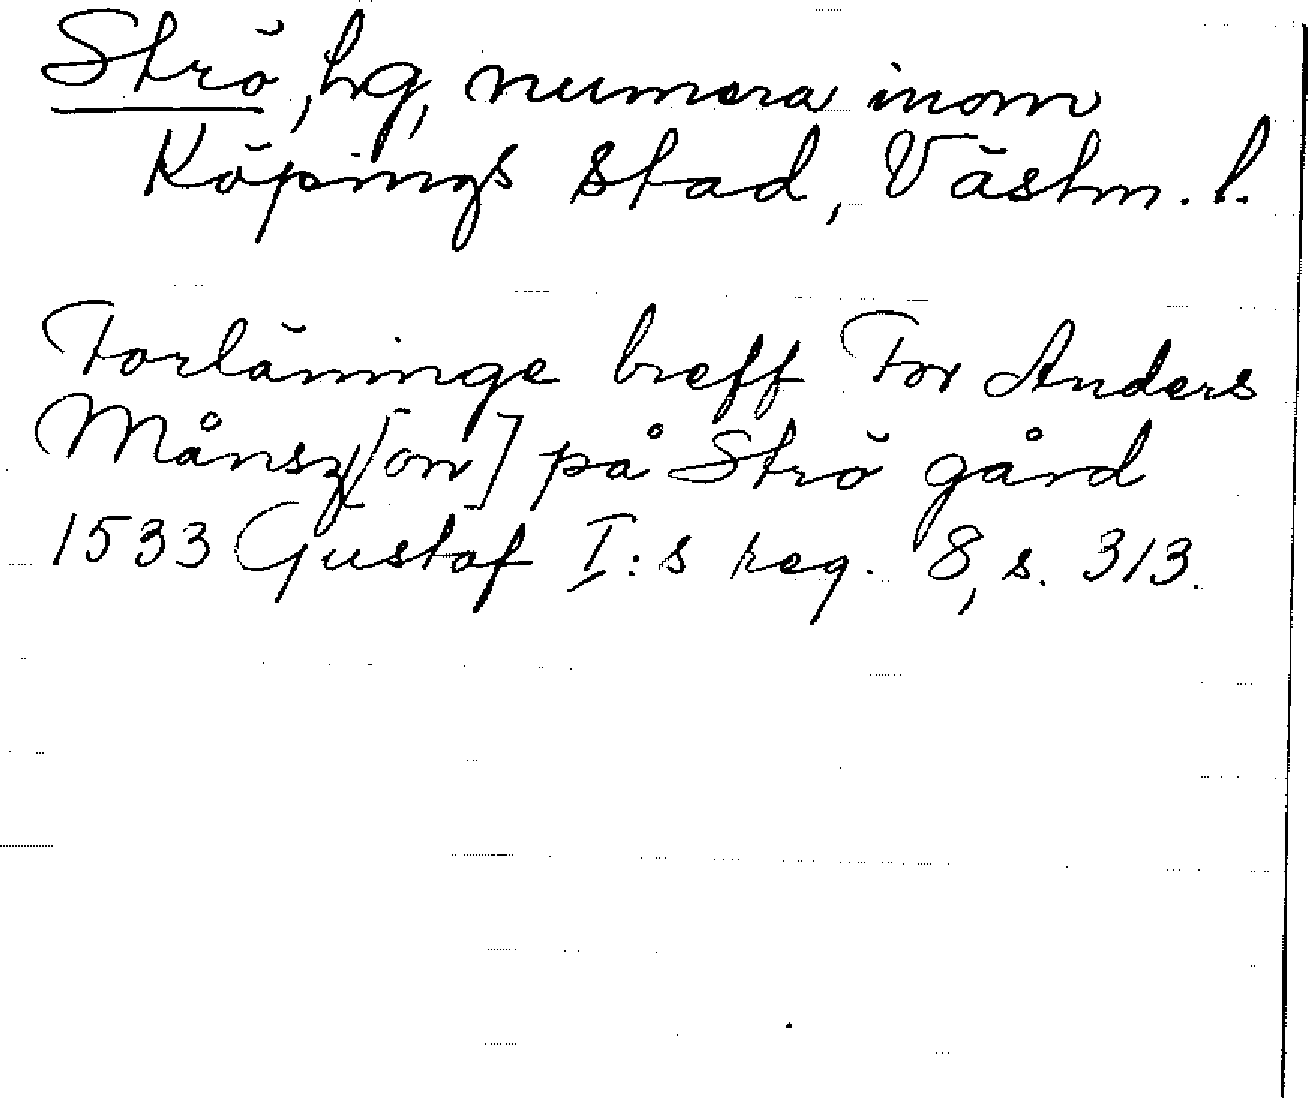 Strö, hg, numera inom
Köpings stad, Västm. l.
Forläninge breff For Anders
Månsz[on] på Strö gård
1533 Gustaf I:s reg. 8, s. 313.